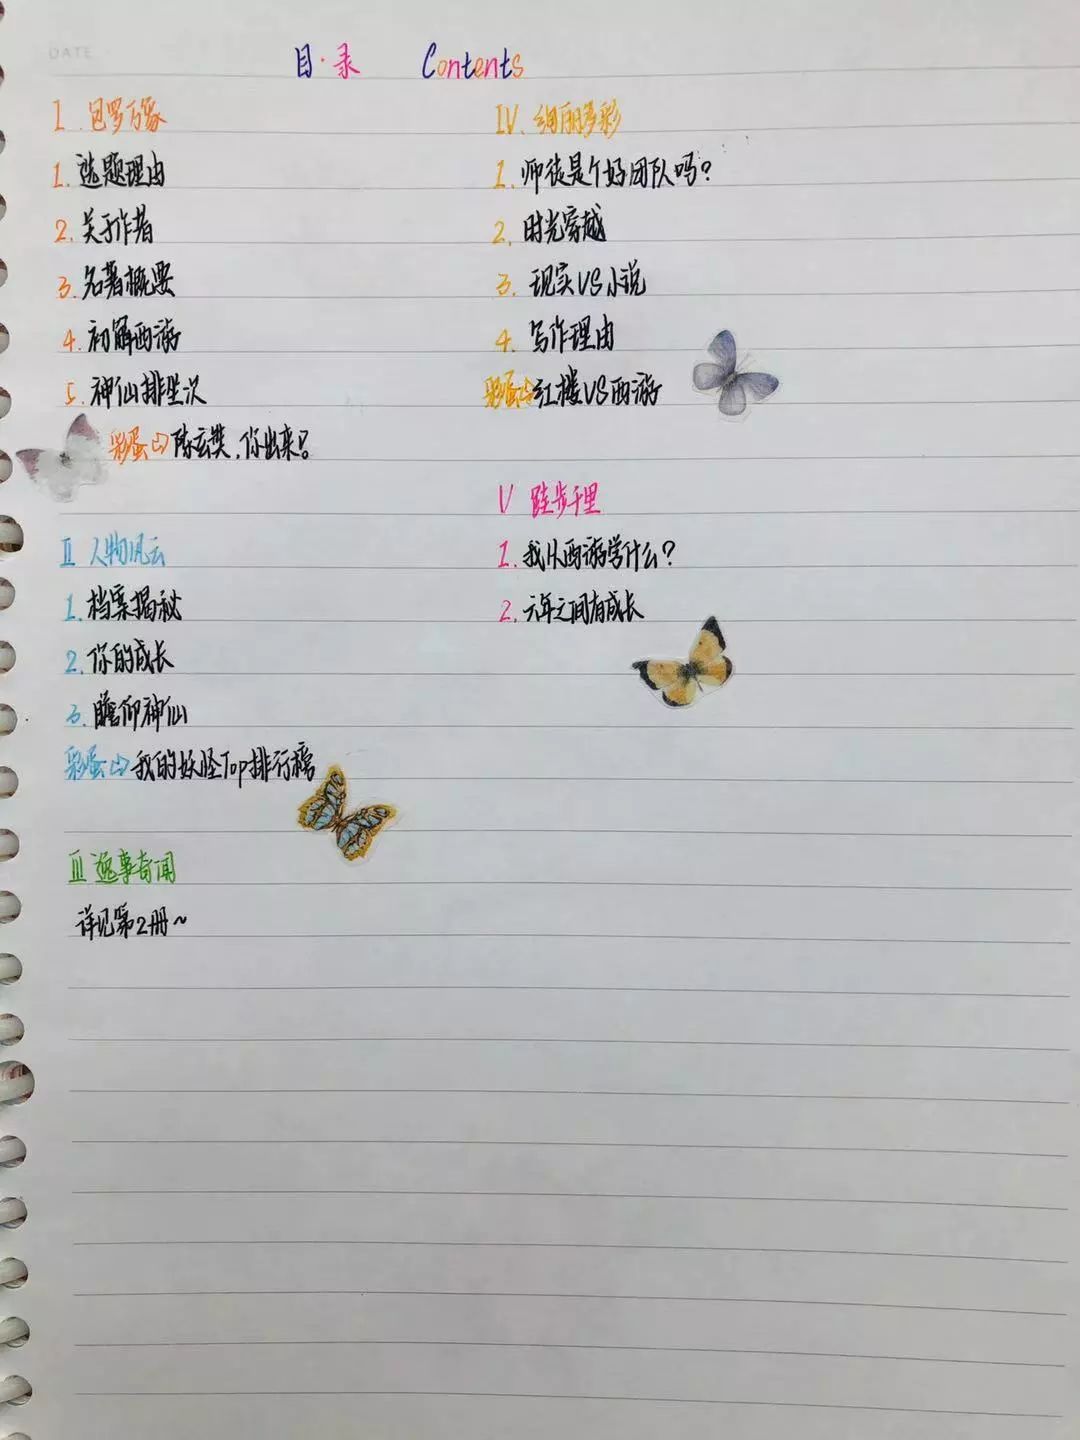 DATE
目·录 Contents
I. 包罗万象
1. 选题理由
2. 关于作者
3. 名著概要
4. 初解西游
5. 神仙排坐次
彩蛋⇨陈玄奘,你出来?
II 人物风云
1. 档案揭秘
2. 你的成长
3. 瞻仰神仙
彩蛋⇨我的妖怪Top排行榜
III 逸事奇闻
详见第2册~
IV. 绚丽多彩
1. 师徒是个好团队吗?
2. 时光穿越
3. 现实VS小说
4. 写作理由
彩蛋⇨红楼VS西游
V 跬步千里
1. 我从西游学什么?
2. 六年之间有成长